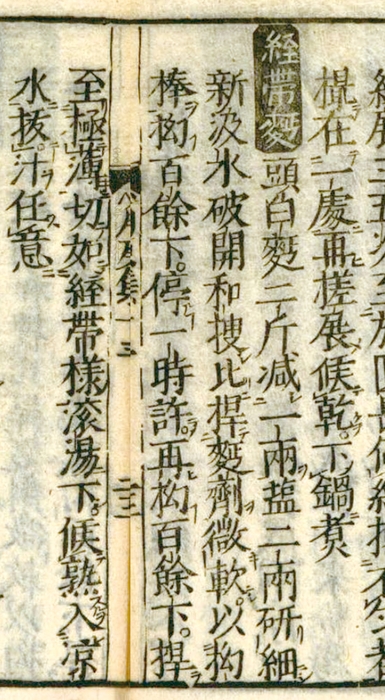 棍在一處再搓展候乾下鍋煮
経帯麪 頭白麪二斤減一両塩二両研細
新汲水破開和捜比捍麪劑微軟以拗
棒拗百餘下。停一時許。再拗百餘下。捍
至極薄切如経帯様滚湯下。候熟入凉
水抜汁任意